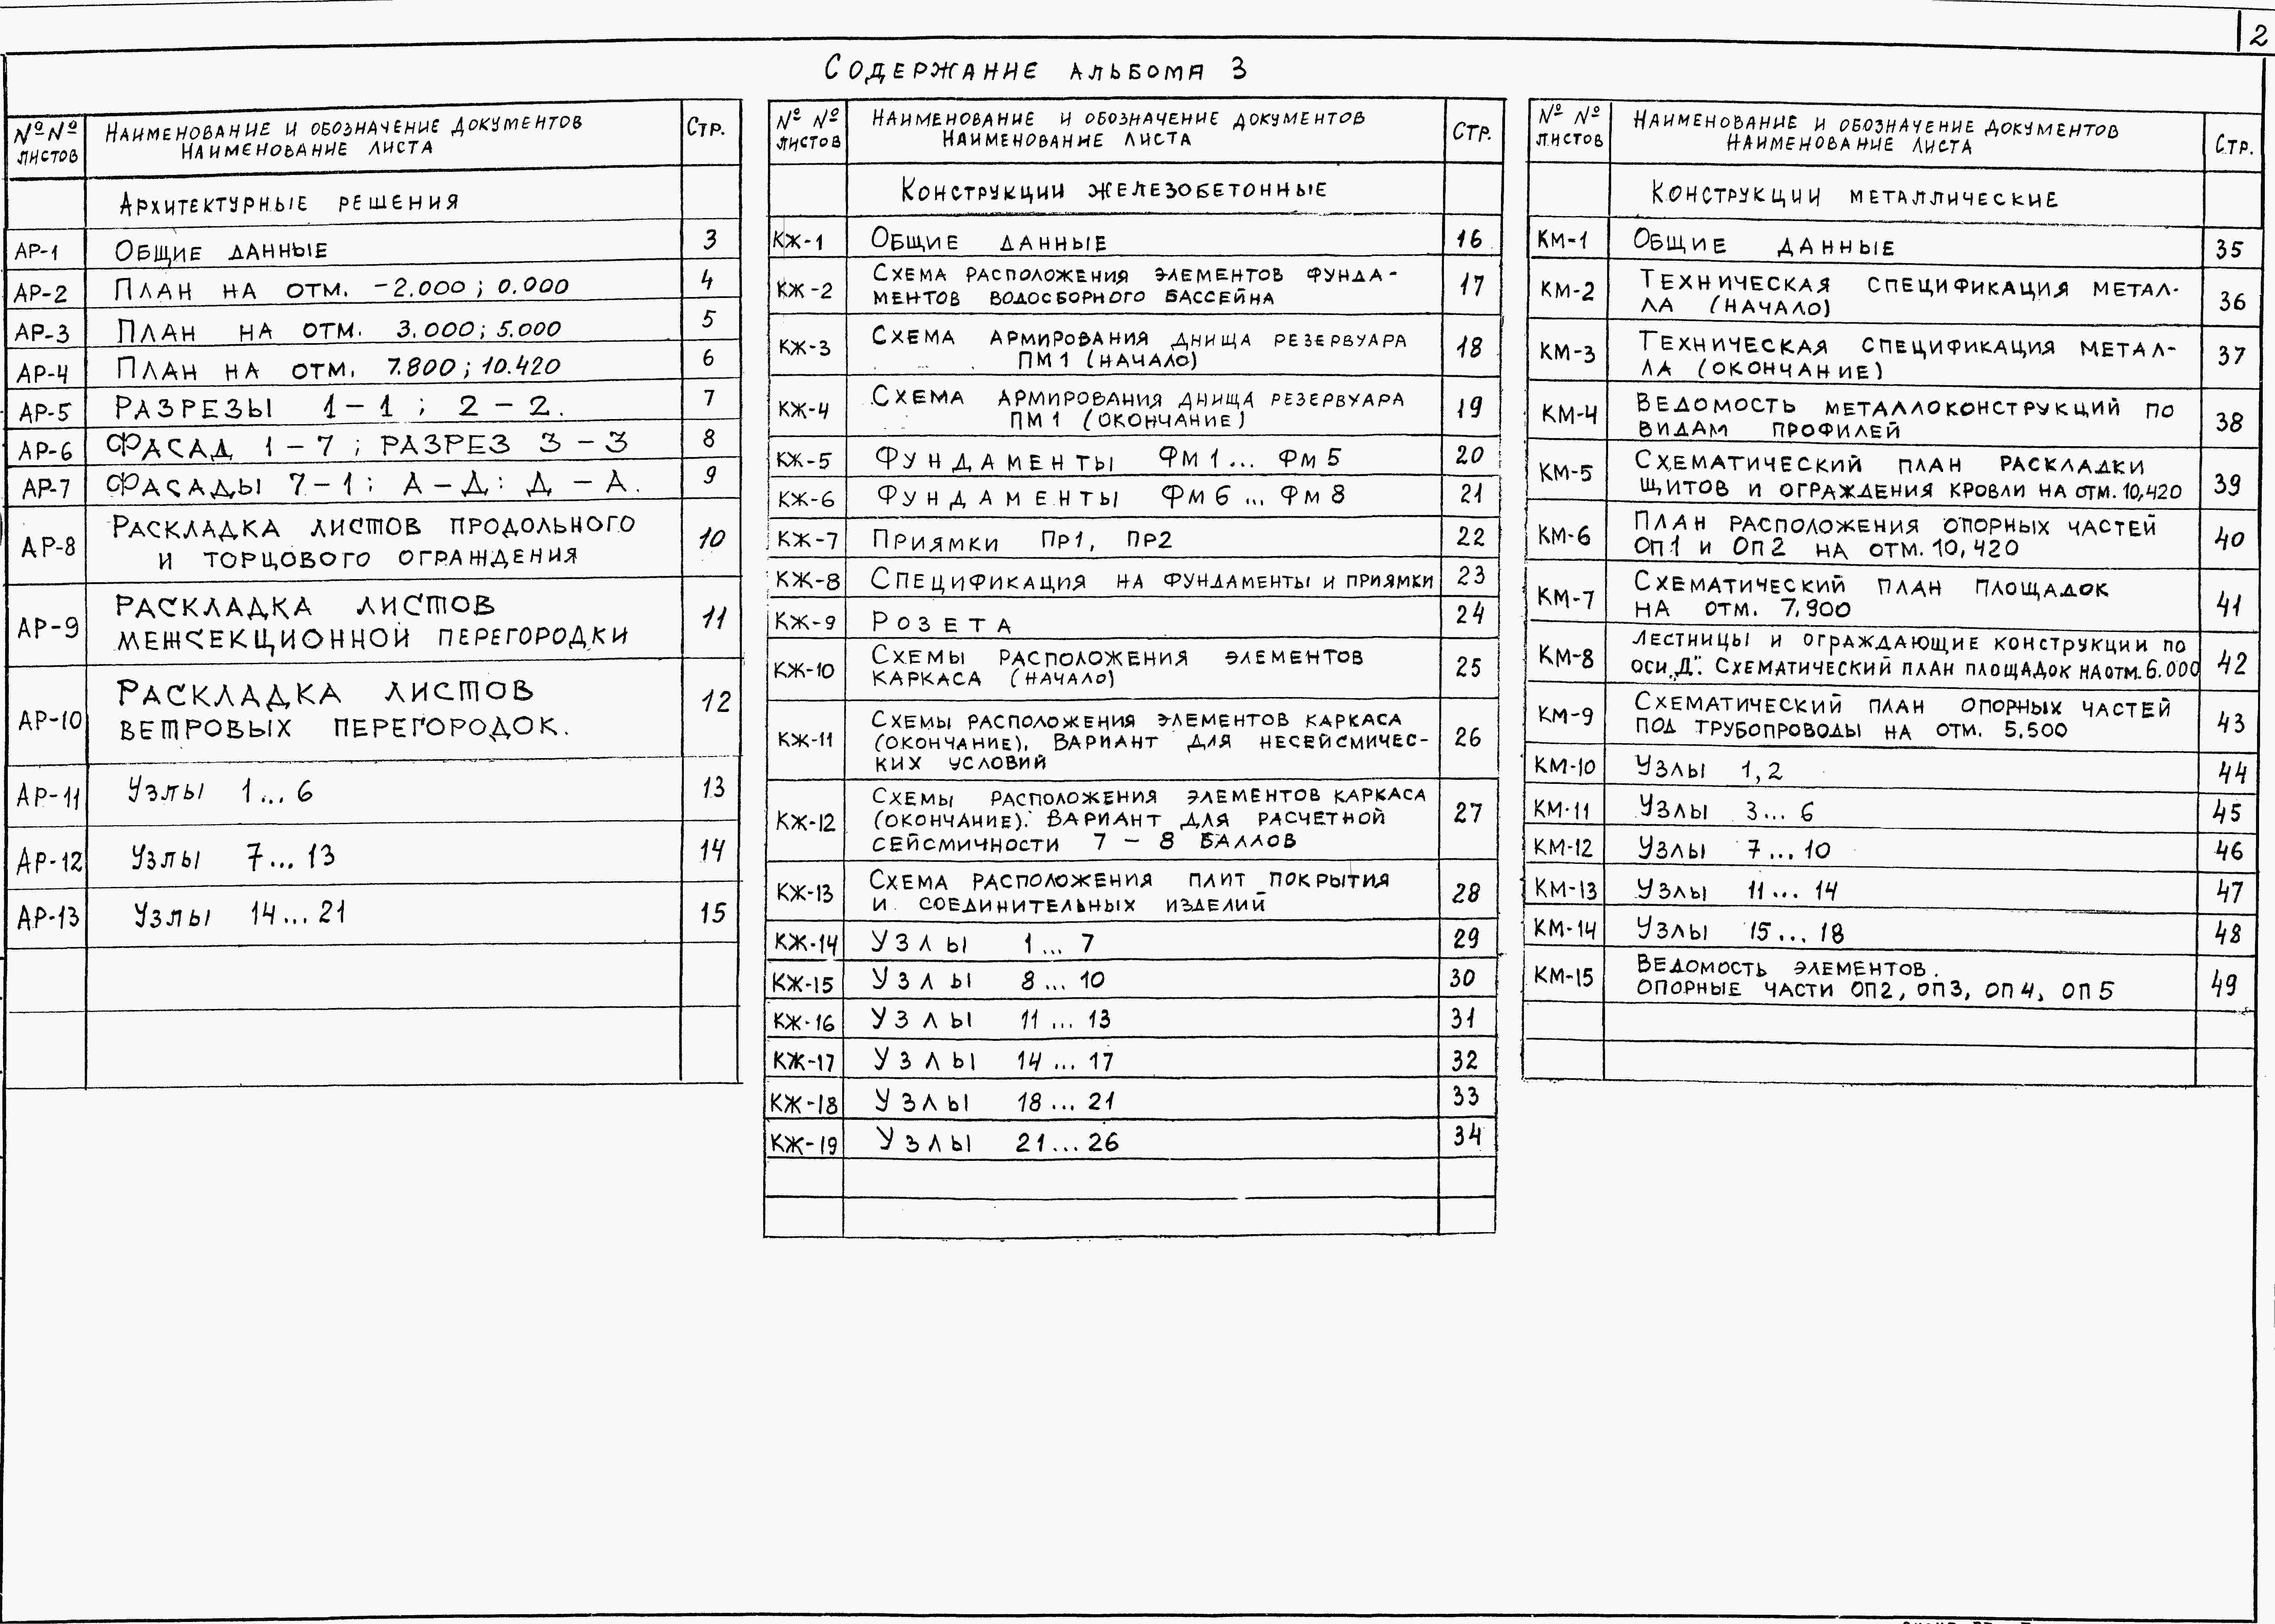 2
Содержание альбома 3
№ №
листов
Наименование и обозначение документов
Наименование листа
Стр.
Архитектурные решения
АР-1 Общие данные 3
АР-2 План на отм. -2.000; 0.000 4
АР-3 План на отм. 3.000; 5.000 5
АР-4 План на отм. 7.800; 10.420 6
АР-5 Разрезы 1-1; 2-2. 7
АР-6 Фасад 1-7; разрез 3-3 8
АР-7 Фасады 7-1; А-Д; Д-А. 9
АР-8 Раскладка листов продольного 10
и торцового ограждения
АР-9 Раскладка листов 11
межсекционной перегородки
АР-10 Раскладка листов 12
ветровых перегородок.
АР-11 Узлы 1...6 13
АР-12 Узлы 7...13 14
АР-13 Узлы 14...21 15
№ №
листов
Наименование и обозначение документов
Наименование листа
Стр.
Конструкции железобетонные
КЖ-1 Общие данные 16
КЖ-2 Схема расположения элементов фунда- 17
ментов водосборного бассейна
КЖ-3 Схема армирования днища резервуара 18
ПМ1 (начало)
КЖ-4 Схема армирования днища резервуара 19
ПМ1 (окончание)
КЖ-5 Фундаменты Фм1... Фм5 20
КЖ-6 Фундаменты Фм6... Фм8 21
КЖ-7 Приямки Пр1, Пр2 22
КЖ-8 Спецификация на фундаменты и приямки 23
КЖ-9 Розета 24
КЖ-10 Схемы расположения элементов 25
каркаса (начало)
КЖ-11 Схемы расположения элементов каркаса 26
(окончание). Вариант для несейсмичес-
ких условий
КЖ-12 Схемы расположения элементов каркаса 27
(окончание). Вариант для расчетной
сейсмичности 7 - 8 баллов
КЖ-13 Схема расположения плит покрытия 28
и соединительных изделий
КЖ-14 Узлы 1...7 29
КЖ-15 Узлы 8...10 30
КЖ-16 Узлы 11...13 31
КЖ-17 Узлы 14...17 32
КЖ-18 Узлы 18...21 33
КЖ-19 Узлы 21...26 34
№ №
листов
Наименование и обозначение документов
Наименование листа
Стр.
Конструкции металлические
КМ-1 Общие данные 35
КМ-2 Техническая спецификация метал- 36
ла (начало)
КМ-3 Техническая спецификация метал- 37
ла (окончание)
КМ-4 Ведомость металлоконструкций по 38
видам профилей
КМ-5 Схематический план раскладки 39
щитов и ограждения кровли на отм. 10,420
КМ-6 План расположения опорных частей 40
ОП1 и ОП2 на отм. 10,420
КМ-7 Схематический план площадок 41
на отм. 7.900
КМ-8 Лестницы и ограждающие конструкции по 42
оси „Д". Схематический план площадок на отм. 6.000
КМ-9 Схематический план опорных частей 43
под трубопроводы на отм. 5.500
КМ-10 Узлы 1,2 44
КМ-11 Узлы 3...6 45
КМ-12 Узлы 7...10 46
КМ-13 Узлы 11...14 47
КМ-14 Узлы 15...18 48
КМ-15 Ведомость элементов. 49
опорные части ОП2, ОП3, ОП4, ОП5